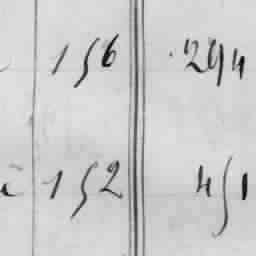 156 294
152 451